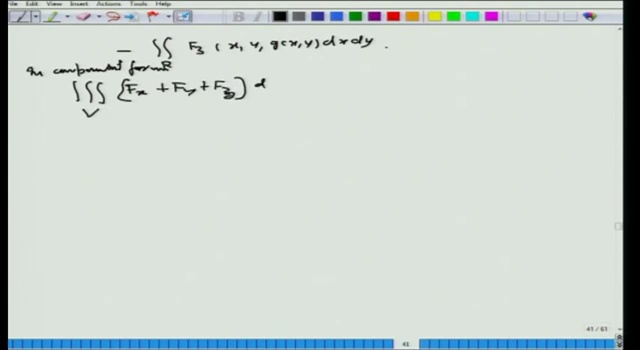 File Edit View Insert Actions Tools Help
− ∬ F₃ (x, y, g(x,y) dx dy .
R
In component form
∭ {Fx + Fy + Fz) d
V
41 / 61
41